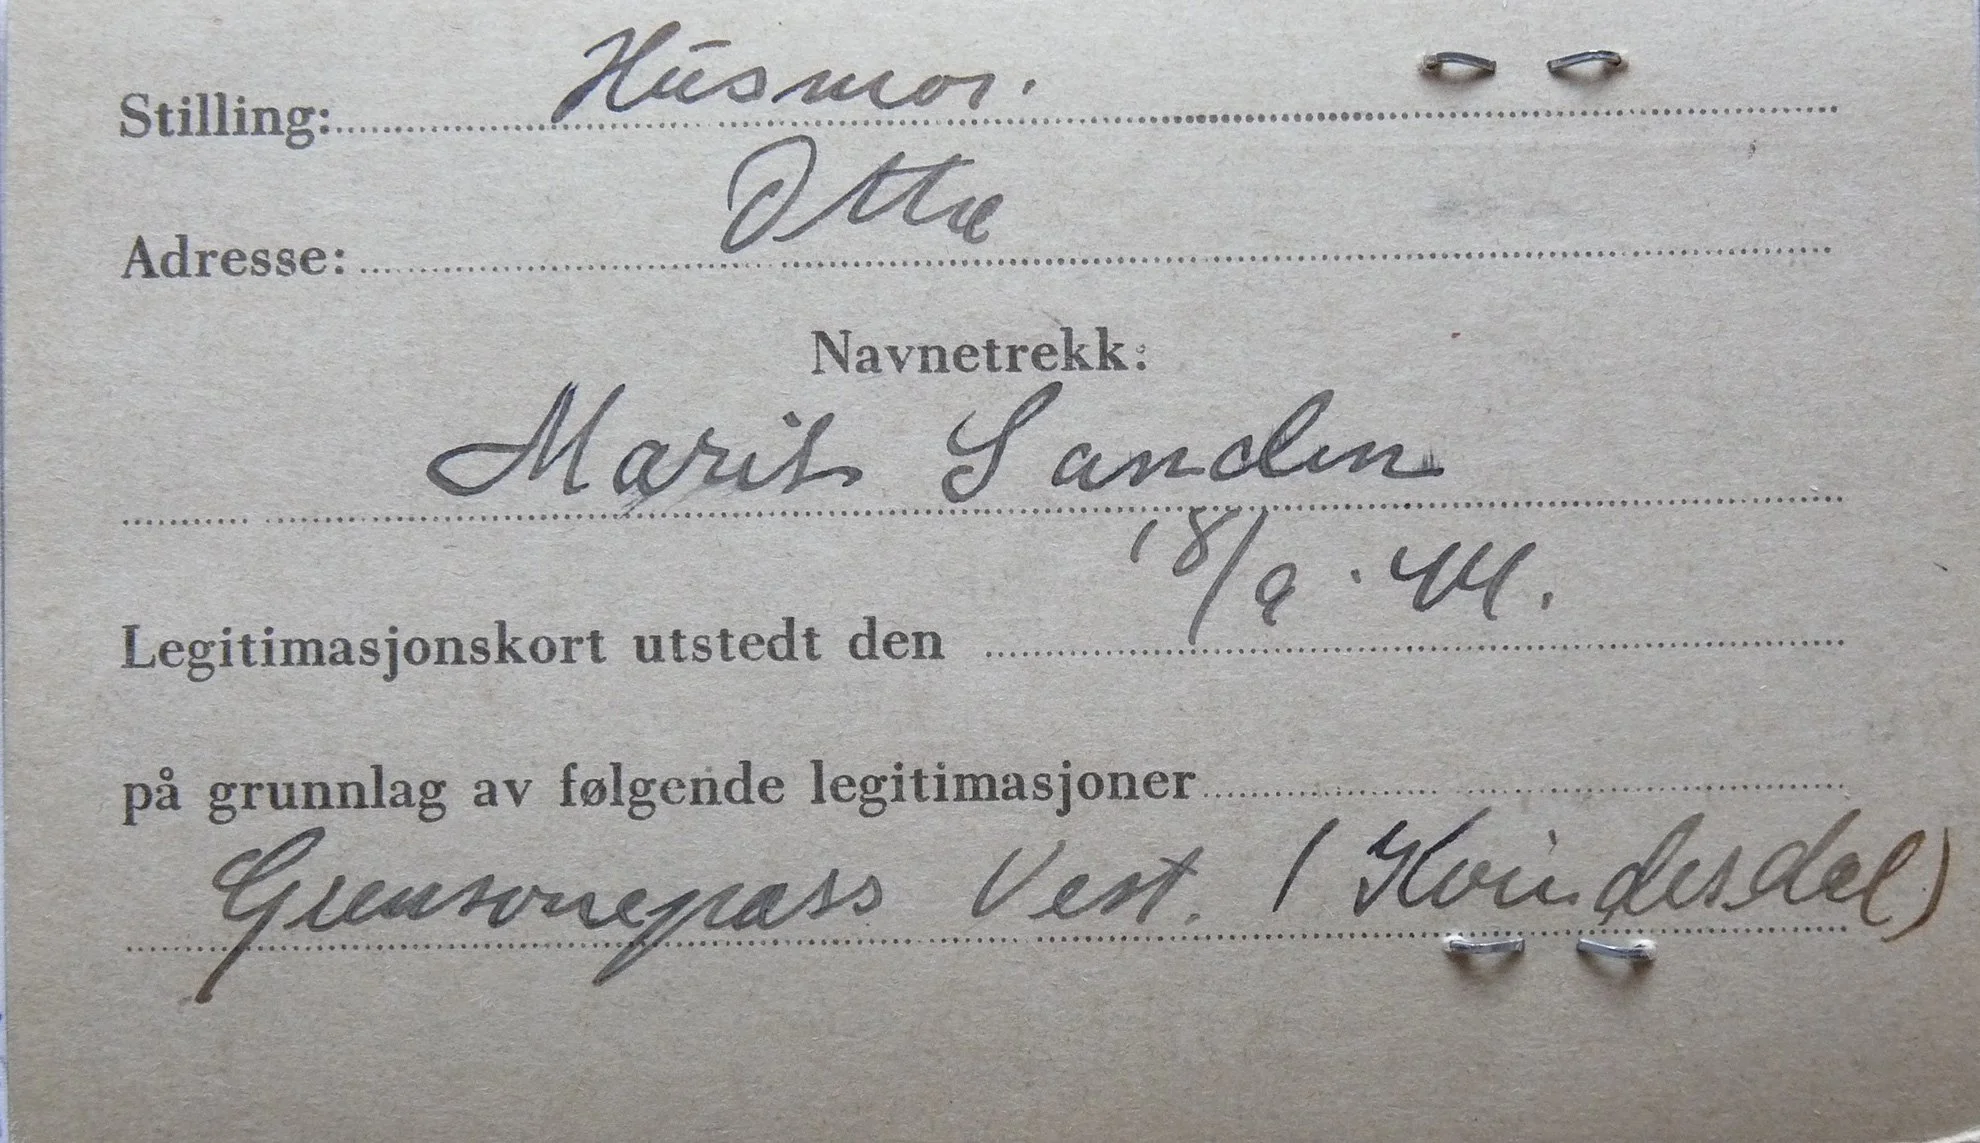 Stilling: Husmor.
Adresse: Otta
Navnetrekk:
Marit Sanden
Legitimasjonskort utstedt den 18/9. 41.
på grunnlag av følgende legitimasjoner
Grensonepass Vest. (Kvindesdal)